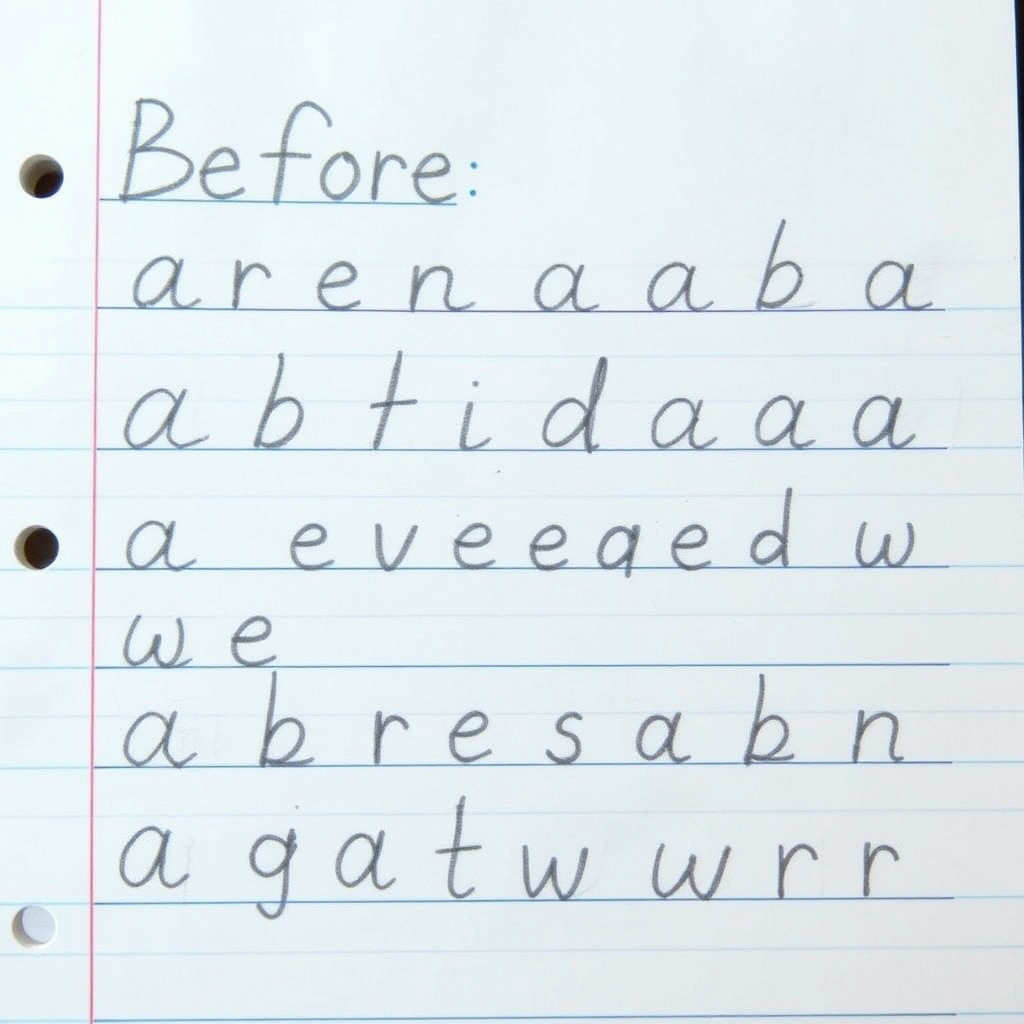 Before:
a r e n a a b a
a b t i d a a a
a e v e e a e d w
w e
a b r e s a b n
a g a t w w r r